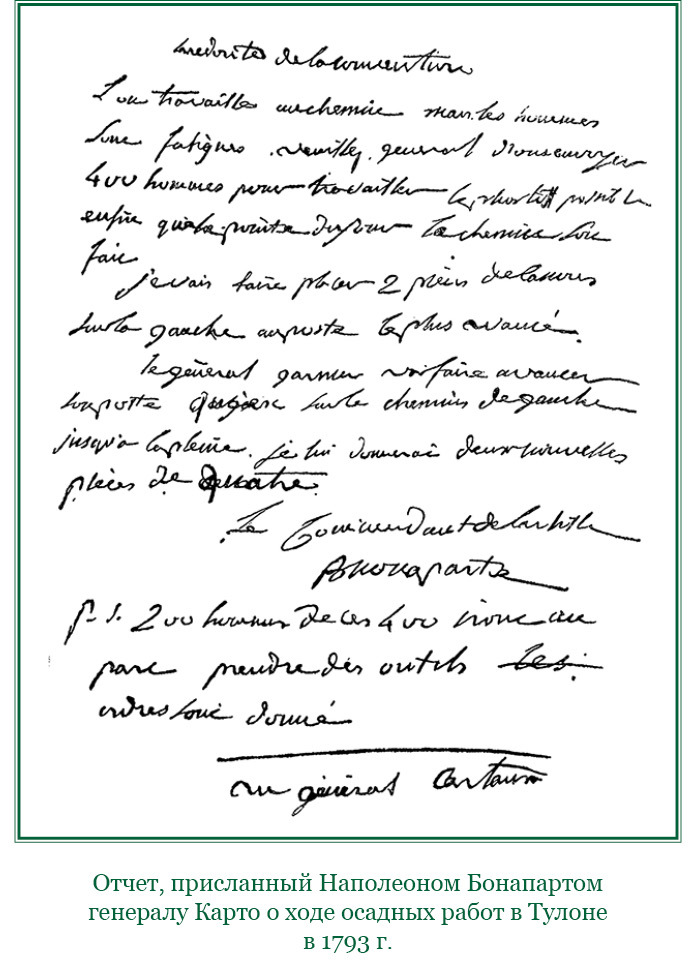 de la convention
L'on travaille au chemin mais les hommes
sont fatigues. veuillez general nous envoyer
400 hommes pour travailler
enfin que la pointe du jour le chemin soit
fait
je vais faire placer 2 pièces
sur la gauche au poste le plus avancé.
le général garnier va faire avancer
son poste sur le chemin de gauche
jusqu'a la pleine. je lui donnerai deux nouvelles
pièces de quatre.
Le Commandant de l'artil
Buonaparte
p. s. 200 hommes de ces 400 iront au
parc prendre des outils les
ordres sont donné
au général Cartaux
Отчет, присланный Наполеоном Бонапартом
генералу Карто о ходе осадных работ в Тулоне
в 1793 г.